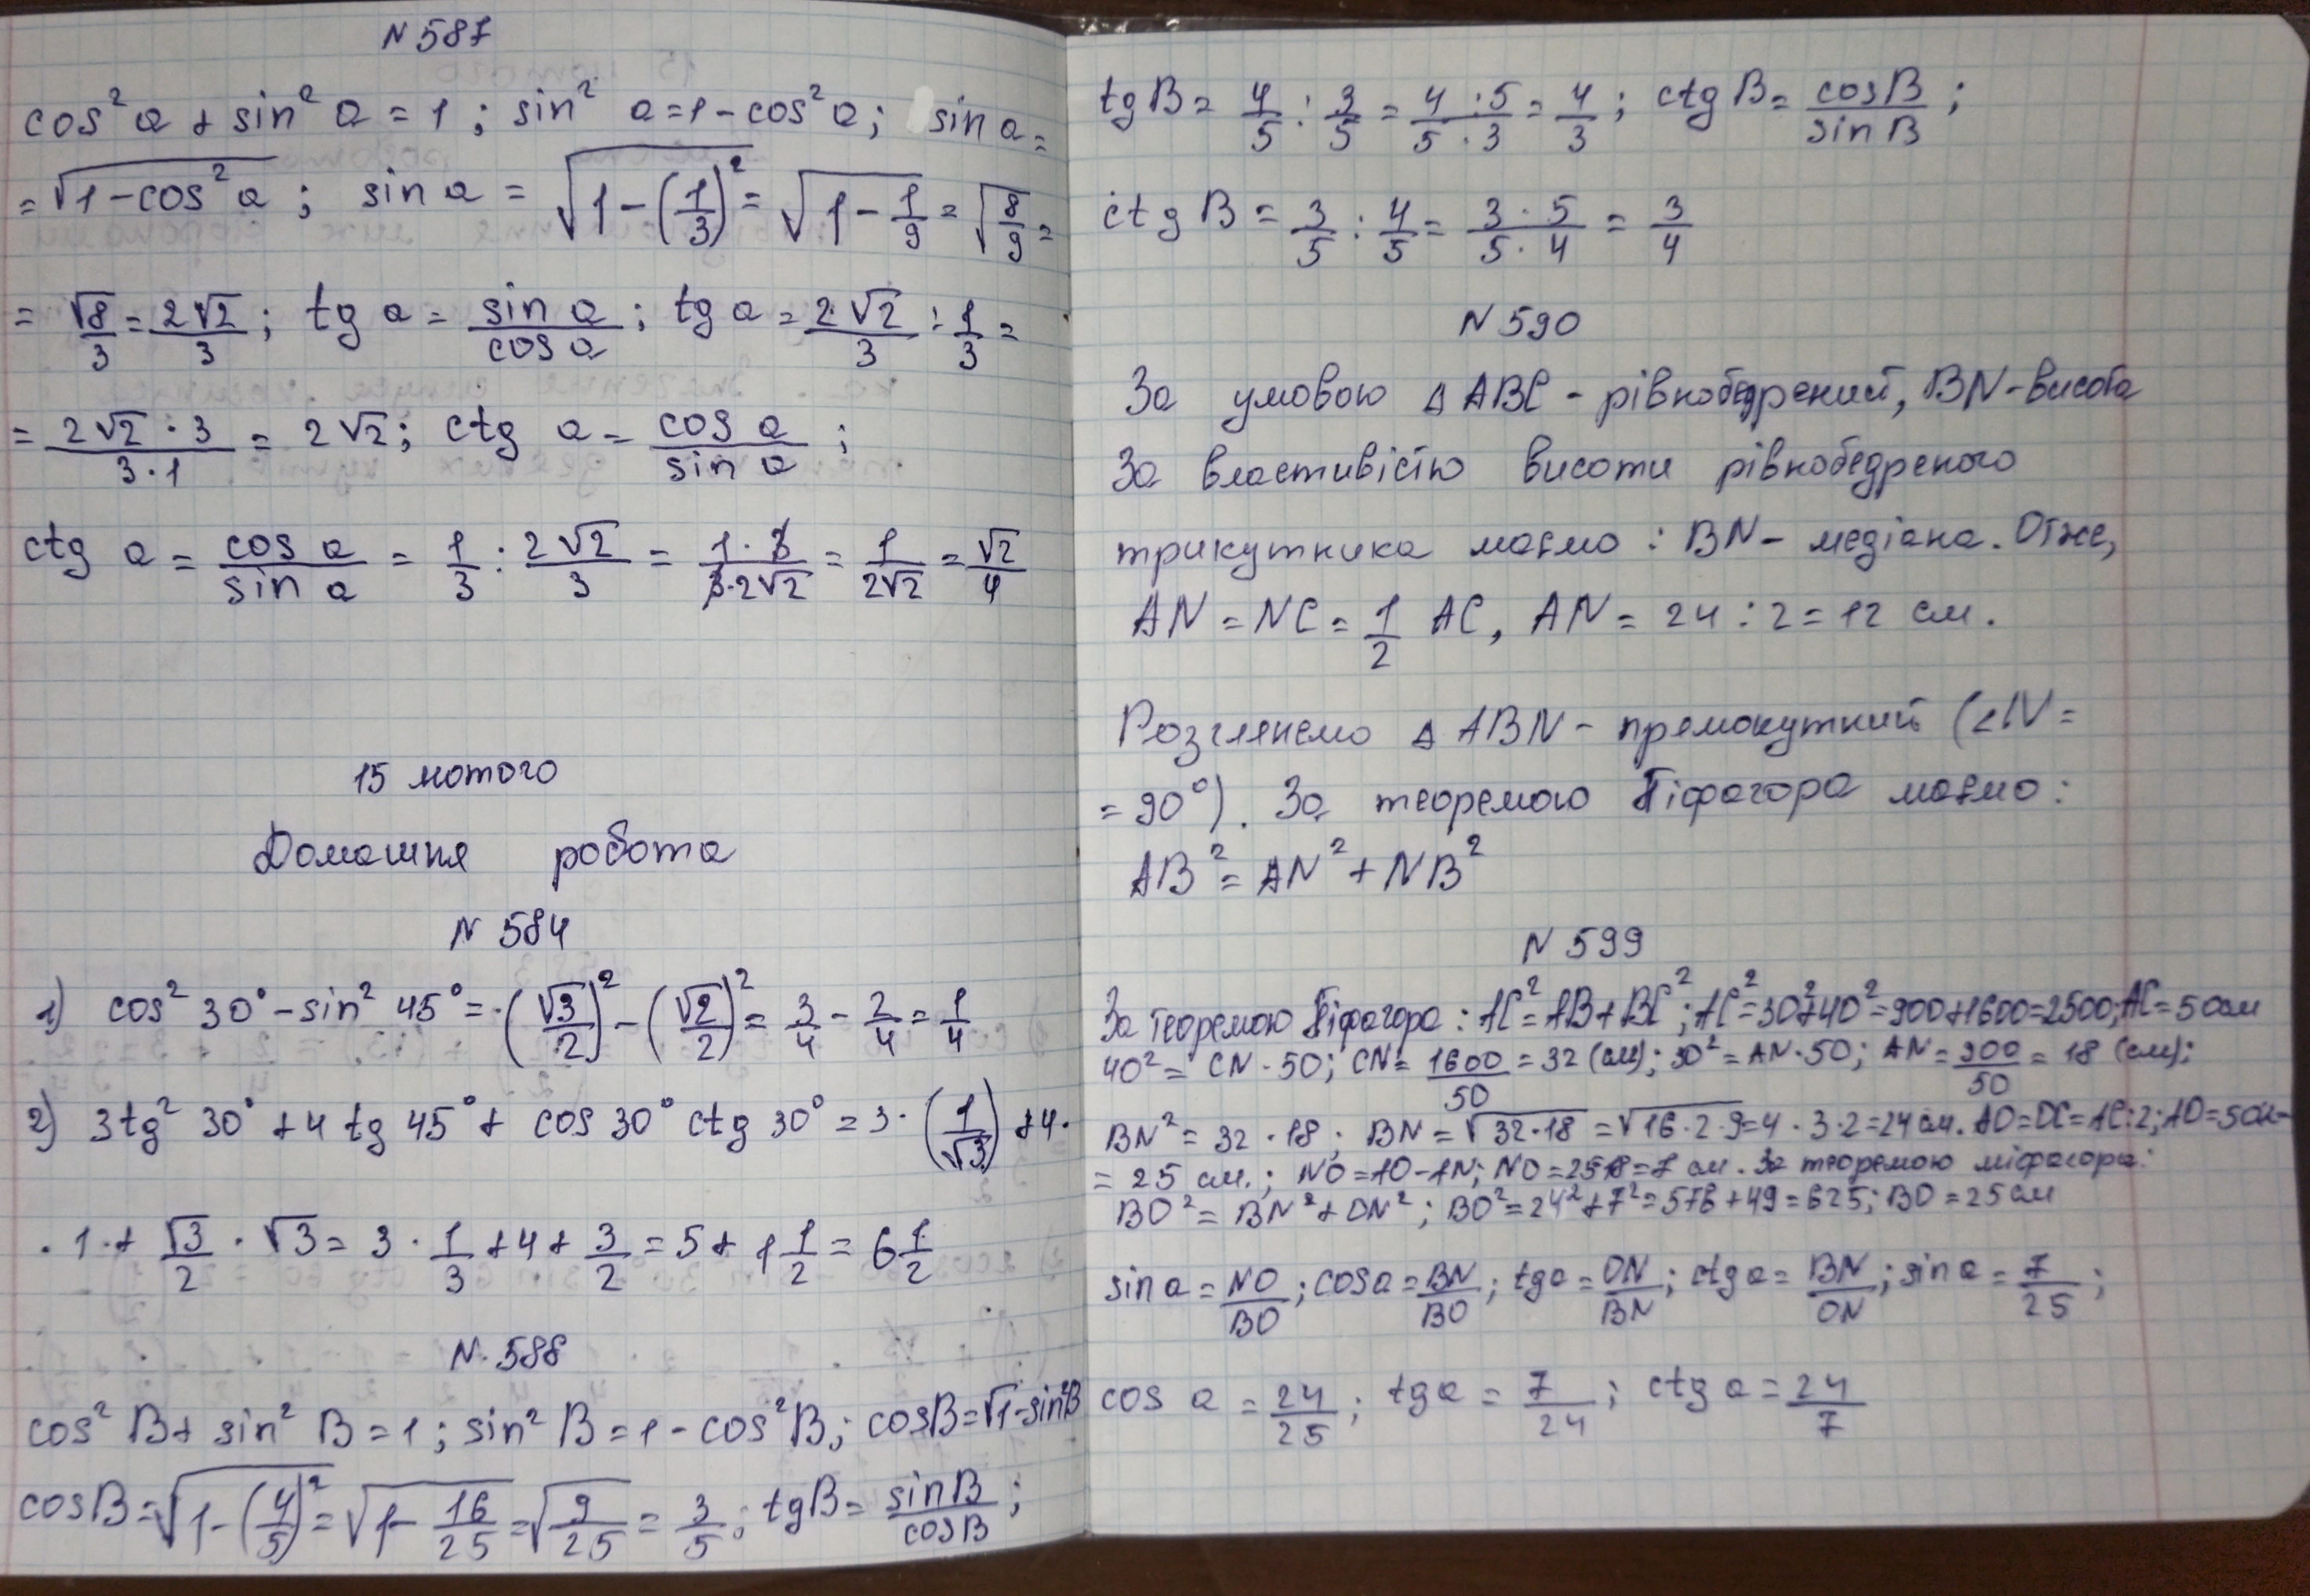 N 587
cos² a + sin² a = 1 ; sin² a = 1 - cos² a ; sin a =
= √(1 - cos² a) ; sin a = √(1 - (1/3)²) = √(1 - 1/9) = √(8/9) =
= √8/3 = 2√2/3 ; tg a = sin a/cos a ; tg a = 2·√2/3 : 1/3 =
= 2√2 · 3/3·1 = 2√2 ; ctg a = cos a/sin a ;
ctg a = cos a/sin a = 1/3 : 2√2/3 = 1·3/3·2√2 = 1/2√2 = √2/4
15 лютого
Домашня робота
N 584
1) cos² 30° - sin² 45° = (√3/2)² - (√2/2)² = 3/4 - 2/4 = 1/4
2) 3tg² 30° + 4 tg 45° + cos 30° ctg 30° = 3 · (1/√3) + 4 ·
· 1 + √3/2 · √3 = 3 · 1/3 + 4 + 3/2 = 5 + 1 1/2 = 6 1/2
N 588
cos² B + sin² B = 1 ; sin² B = 1 - cos² B ; cos B = √(1 - sin² B)
cos B = √(1 - (4/5)²) = √(1 - 16/25) = √(9/25) = 3/5 ; tg B = sin B/cos B ;
tg B = 4/5 : 3/5 = 4 · 5/5 · 3 = 4/3 ; ctg B = cos B/sin B ;
ctg B = 3/5 : 4/5 = 3 · 5/5 · 4 = 3/4
N 590
За умовою Δ ABC - рівнобедрений, BN - висота
За властивістю висоти рівнобедреного
трикутника маємо : BN - медіана. Отже,
AN = NC = 1/2 AC, AN = 24 : 2 = 12 см.
Розглянемо Δ ABN - прямокутний (∠N =
= 90°). За теоремою Піфагора маємо :
AB² = AN² + NB²
N 599
За теоремою Піфагора : AC² = AB + BC² ; AC² = 30² + 40² = 900 + 1600 = 2500 ; AC = 50 см
40² = CN · 50 ; CN = 1600/50 = 32 (см) ; 30² = AN · 50 ; AN = 900/50 = 18 (см) ;
BN² = 32 · 18 ; BN = √(32 · 18) = √(16 · 2 · 9) = 4 · 3 · 2 = 24 см. AO = OC = AC : 2 ; AO =
= 25 см. ; NO = AO - AN ; NO = = 7 см. За теоремою піфагора :
BO² = BN² + ON² ; BO² = 24² + 7² = 576 + 49 = 625 ; BO = 25 см
sin a = NO/BO ; cos a = BN/BO ; tg a = ON/BN ; ctg a = BN/ON ; sin a = 7/25 ;
cos a = 24/25 ; tg a = 7/24 ; ctg a = 24/7